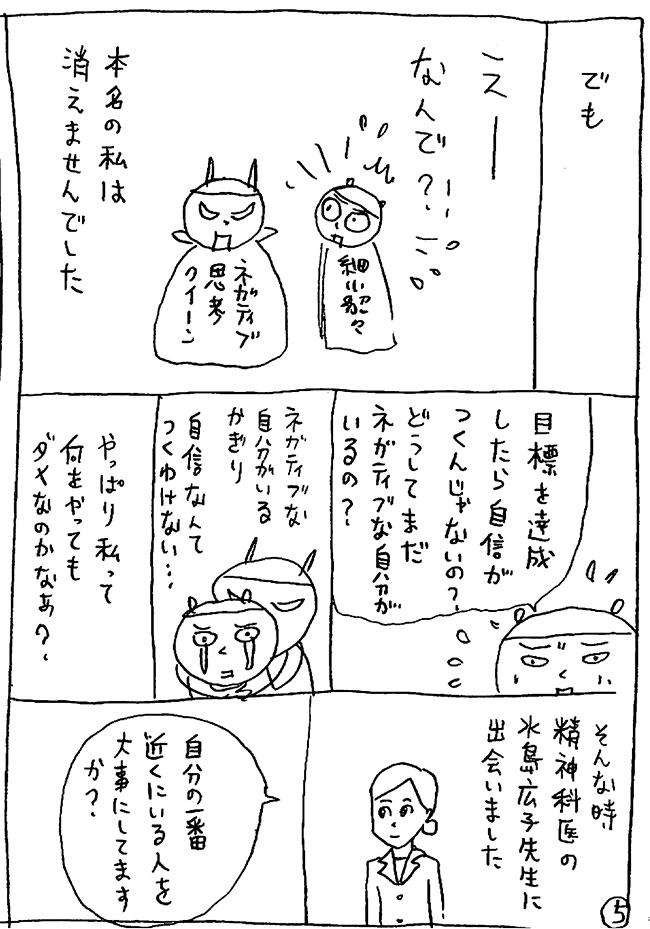 でも
えー
なんで?!
本名の私は
消えませんでした
細川貂々
ネガティブ
思考
クイーン
目標を達成
したら自信が
つくんじゃないの?
どうしてまだ
ネガティブな自分が
いるの?
ネガティブな
自分がいる
かぎり
自信なんて
つくわけない…
やっぱり私って
何をやっても
ダメなのかなあ?
そんな時
精神科医の
水島広子先生に
出会いました
自分の一番
近くにいる人を
大事にしてます
か?
5